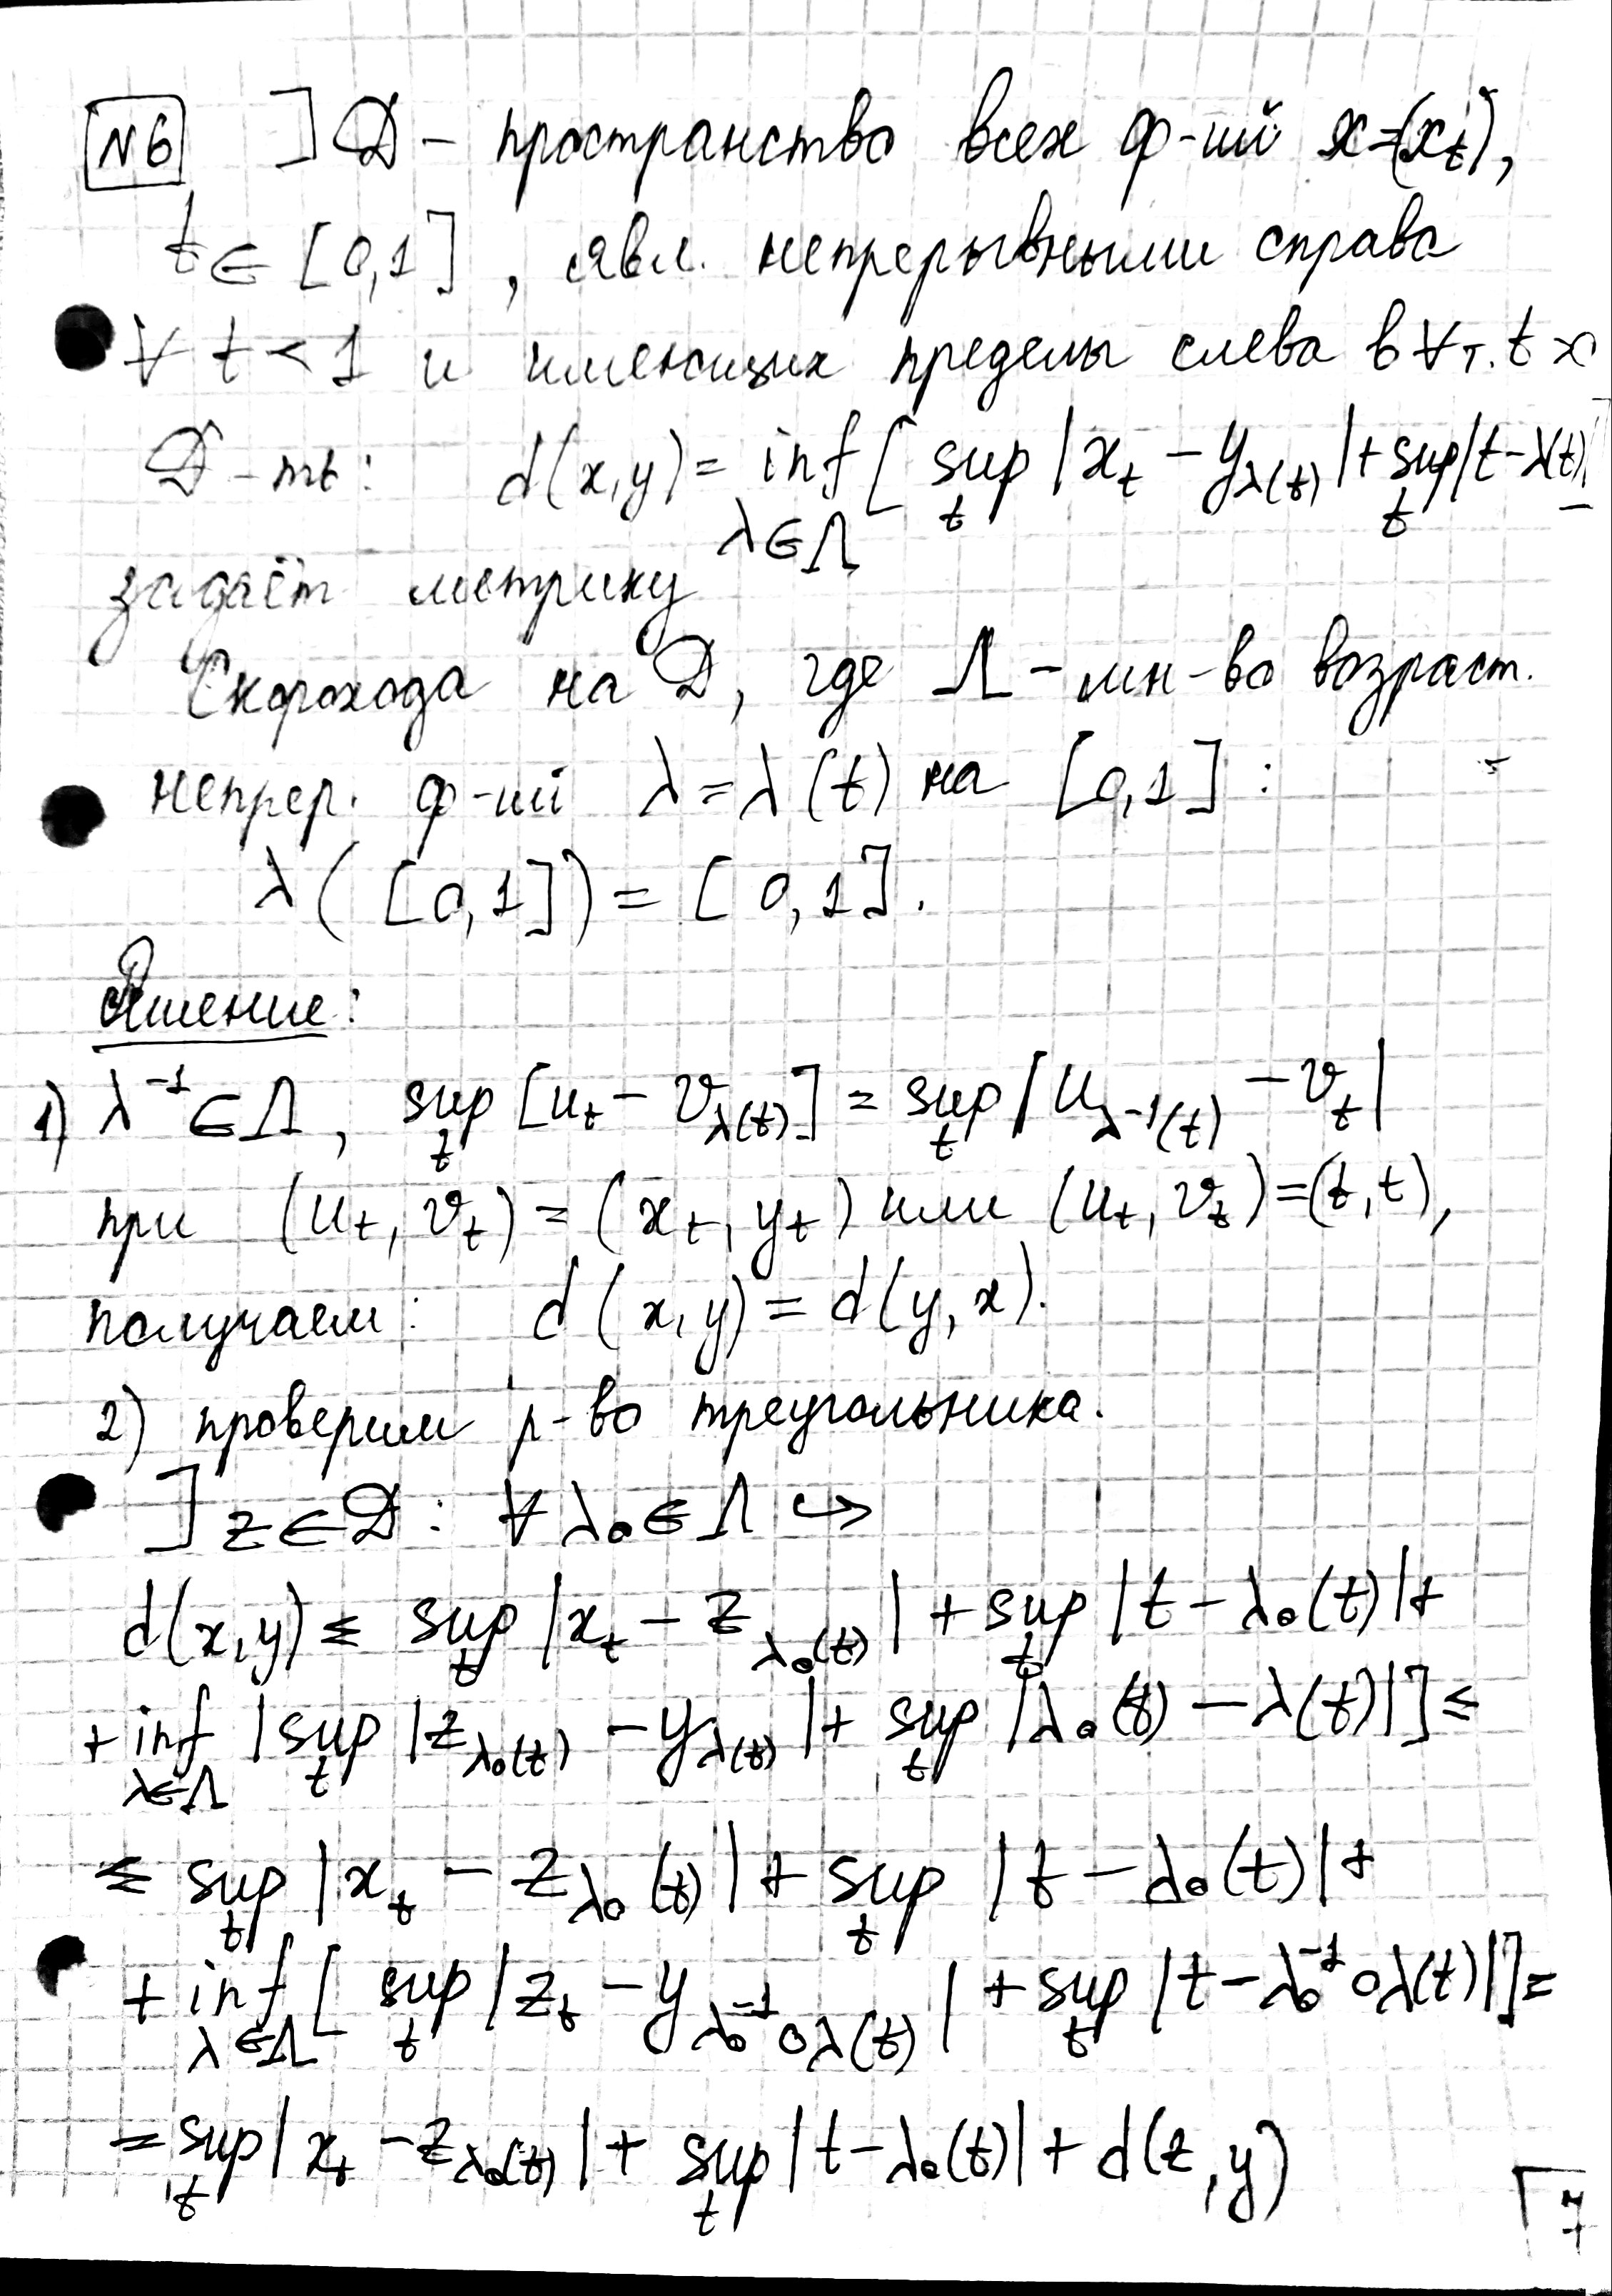 №6 ] D - пространство всех ф-ий x=(x_t),
t ∈ [0,1], явл. непрерывными справа
∀ t < 1 и имеющих пределы слева в ∀ т. t x
D-ть: d(x,y) = inf_{λ∈Λ} [ sup_t |x_t - y_{λ(t)}| + sup_t |t - λ(t)| ]
задаёт метрику
Скорохода на D, где Λ - мн-во возраст.
непрер. ф-ий λ = λ(t) на [0,1]:
λ([0,1]) = [0,1].
Решение:
1) λ^{-1} ∈ Λ, sup_t [u_t - v_{λ(t)}] = sup_t |u_{λ^{-1}(t)} - v_t|
при (u_t, v_t) = (x_t, y_t) или (u_t, v_t) = (t, t),
получаем: d(x,y) = d(y,x).
2) проверим р-во треугольника.
] z ∈ D: ∀ λ_0 ∈ Λ ↪
d(x,y) ≤ sup_t |x_t - z_{λ_0(t)}| + sup_t |t - λ_0(t)| +
+ inf_{λ∈Λ} | sup_t |z_{λ_0(t)} - y_{λ(t)}| + sup_t |λ_0(t) - λ(t)| ] ≤
≤ sup_t |x_t - z_{λ_0(t)}| + sup_t |t - λ_0(t)| +
+ inf_{λ∈Λ} [ sup_t |z_t - y_{λ_0^{-1}∘λ(t)}| + sup_t |t - λ_0^{-1}∘λ(t)| ] =
= sup_t |x_t - z_{λ_0(t)}| + sup_t |t - λ_0(t)| + d(z,y)
7